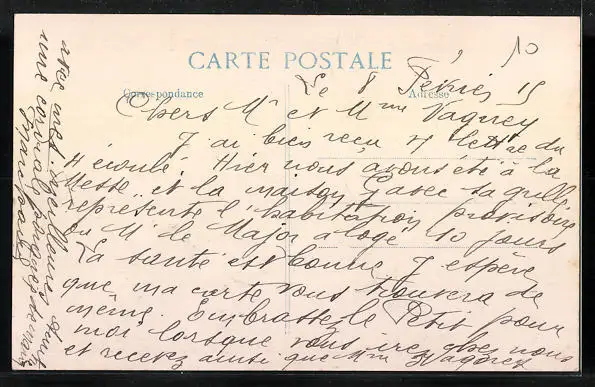 10
CARTE POSTALE
Correspondance
Adresse
Le 8 Février 15
Chers Mr et Mme Vagney
J ai bien reçu v lettre du
écoulé. Hier nous avons été à la
Messe et la maison avec sa grille
représente l'habitation provisoire
ou Mr le Major a logé 10 jours
La santé est bonne J espère
que ma carte vous trouvera de
même. Embrassez le Petit pour
moi lorsque vous irez chez nous
et recevez ainsi que Mme
avec mes meilleures
une cordiale poignée de main